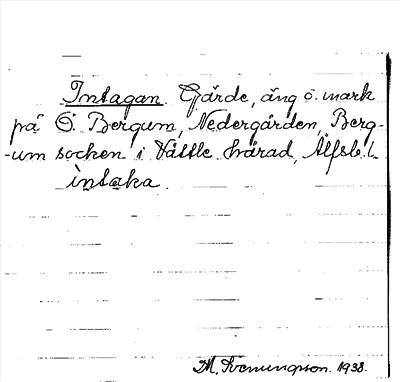 Intagan. Gärde, äng o. mark
på Ö. Bergum, Nedergården, Berg-
-um socken i Vättle härad, Älfsb. l.
intaka.
M. Svenungson. 1938.